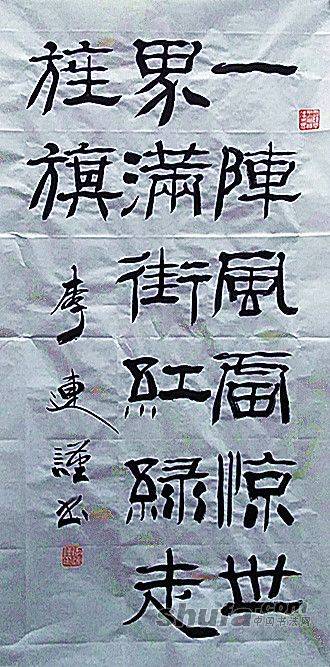 一陣風雷惊世
界滿街紅綠走
旌旗
李連謹书
shufa.com
中国书法网